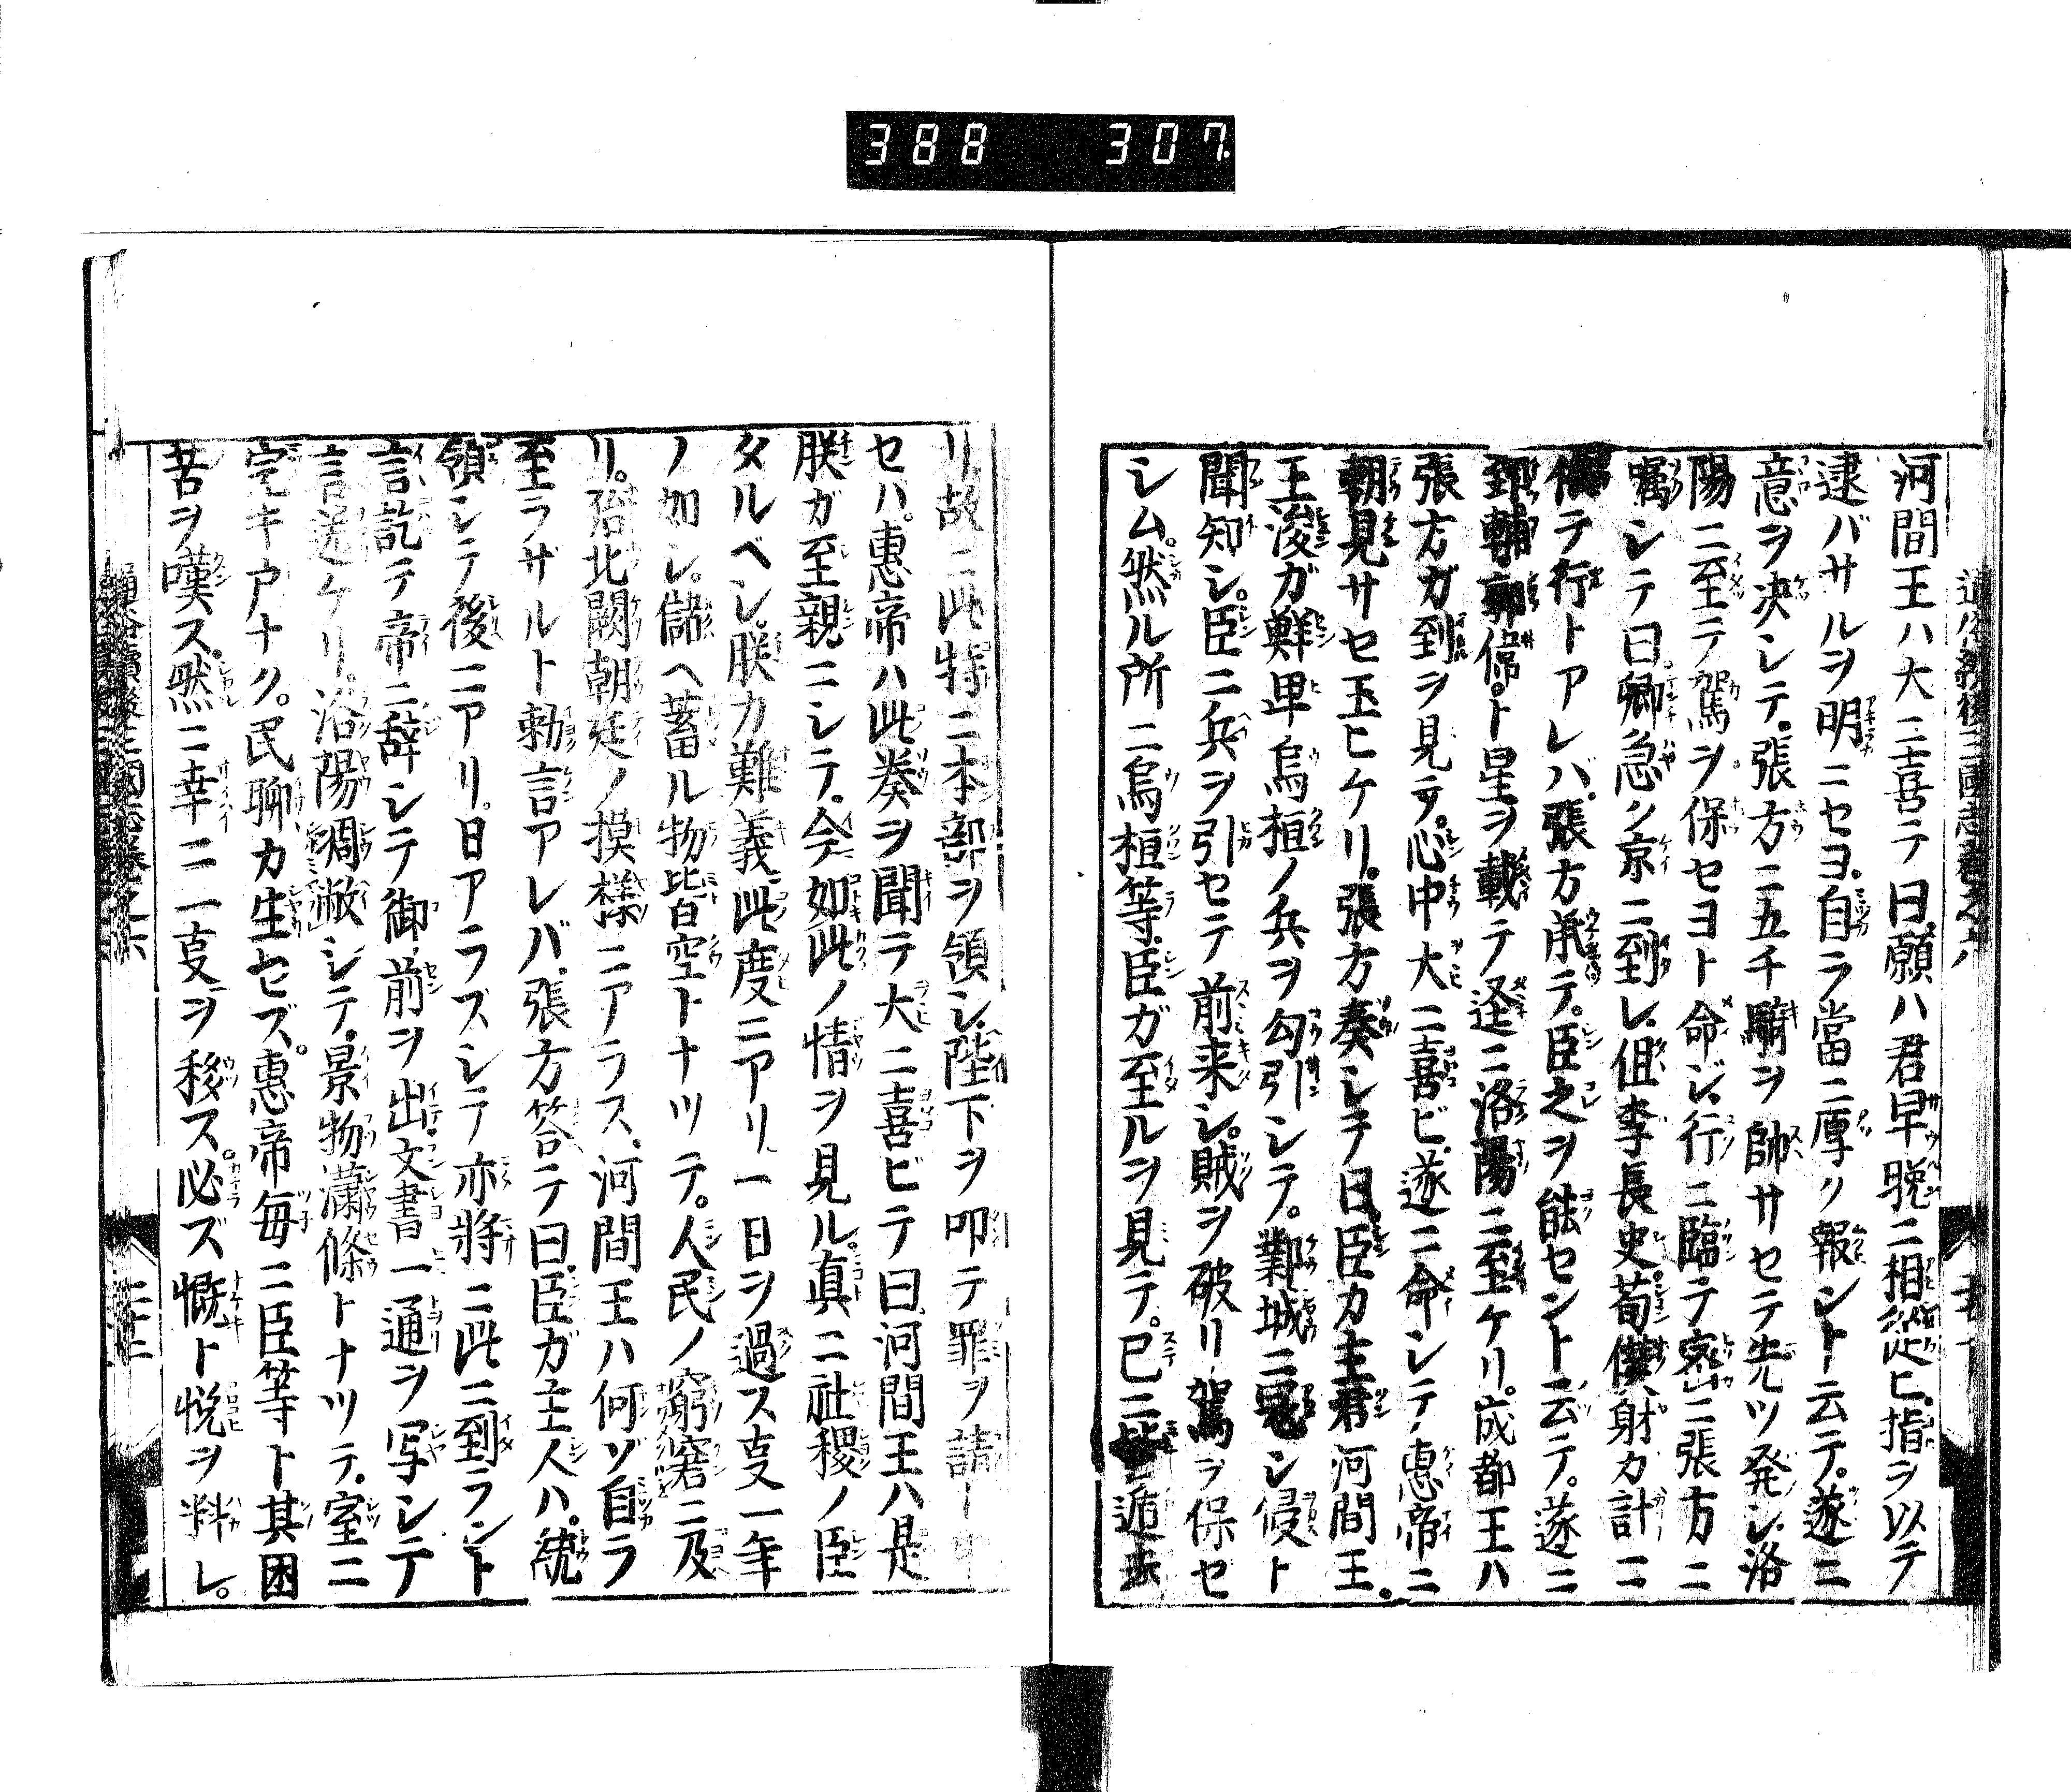 388 307
河間王ハ大ニ喜テ曰願ハ君早晩ニ相從ヒ指ヲ以テ
逮バサルヲ明ニセヨ自ラ當ニ厚ク報ント云テ遂ニ
意ヲ決シテ張方ニ五千騎ヲ帥サセテ先ツ発シ洛
陽ニ至テ駕ヲ保セヨト命ジ行ニ臨テ密ニ張方ニ
囑シテ曰卿急ク京ニ到レ但李長史荀僕射カ計ニ
テ行トアレバ張方承テ臣之ヲ能セント云テ遂ニ
郅輔郭偉ト星ヲ載テ逕ニ洛陽ニ至ケリ成都王ハ
張方ガ到ヲ見テ心中大ニ喜ビ遂ニ命シテ惠帝ニ
朝見サセ玉ヒケリ張方奏シテ曰臣カ主君河間王
王浚ガ鮮卑烏桓ノ兵ヲ勾引シテ鄴城ニ寇シ侵ト
聞知シ臣ニ兵ヲ引セテ前来シ賊ヲ破リ駕ヲ保セ
シム然ル所ニ烏桓等臣ガ至ルヲ見テ已ニ遁去
リ故ニ此特ニ本部ヲ領シ陛下ヲ叩テ罪ヲ請
セハ惠帝ハ此奏ヲ聞テ大ニ喜ビテ曰河間王ハ是
朕ガ至親ニシテ今如此ノ情ヲ見ル真ニ社稷ノ臣
タルベシ朕カ難義此度ニアリ一日ヲ過ス叓一年
ノ如シ儲ヘ蓄ル物皆空トナツテ人民ノ窮窘ニ及
リ殆北闕朝廷ノ摸様ニアラス河間王ハ何ゾ自ラ
至ラザルト勅言アレバ張方答テ曰臣ガ主人ハ統
領シテ後ニアリ日アラズシテ亦將ニ此ニ到ラント
言訖テ帝ニ辞シテ御前ヲ出文書一通ヲ写シテ
言送ケリ洛陽凋敝シテ景物瀟條トナツテ室ニ
完キ戸ナク民聊カ生セズ惠帝毎ニ臣等ト其困
苦ヲ嘆ス然ニ幸ニ一叓ヲ移ス必ズ慨ト悦ヲ料レ